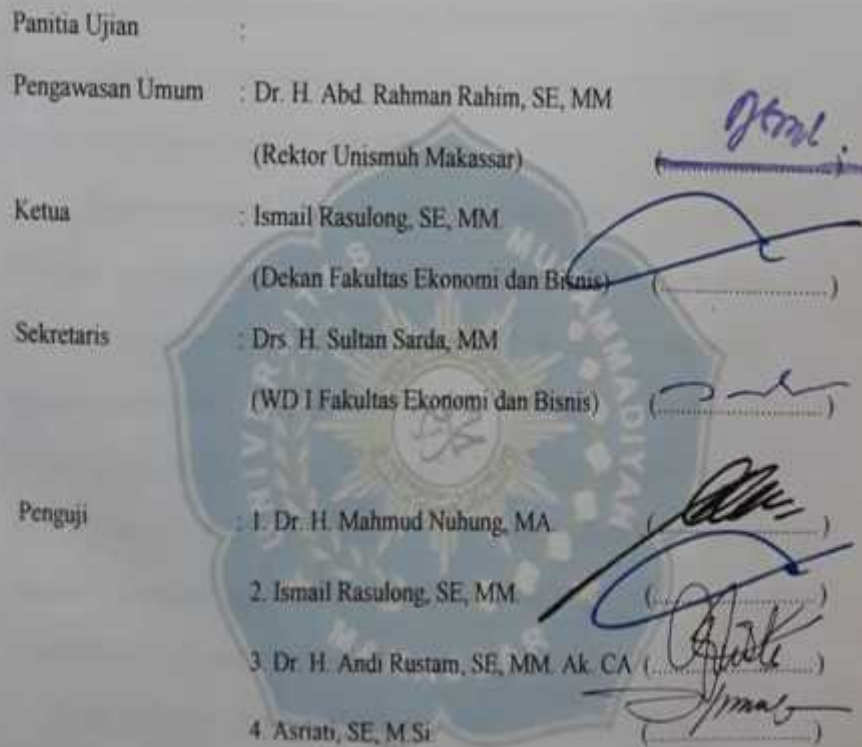 Panitia Ujian :
Pengawasan Umum : Dr. H. Abd. Rahman Rahim, SE, MM
(Rektor Unismuh Makassar) (....................)
Ketua : Ismail Rasulong, SE, MM.
(Dekan Fakultas Ekonomi dan Bisnis) (....................)
Sekretaris : Drs. H. Sultan Sarda, MM
(WD I Fakultas Ekonomi dan Bisnis) (....................)
Penguji : 1. Dr. H. Mahmud Nuhung, MA. (....................)
2. Ismail Rasulong, SE, MM. (....................)
3. Dr. H. Andi Rustam, SE, MM. Ak. CA (....................)
4. Asriati, SE, M.Si. (....................)
UNIVERSITAS MUHAMMADIYAH